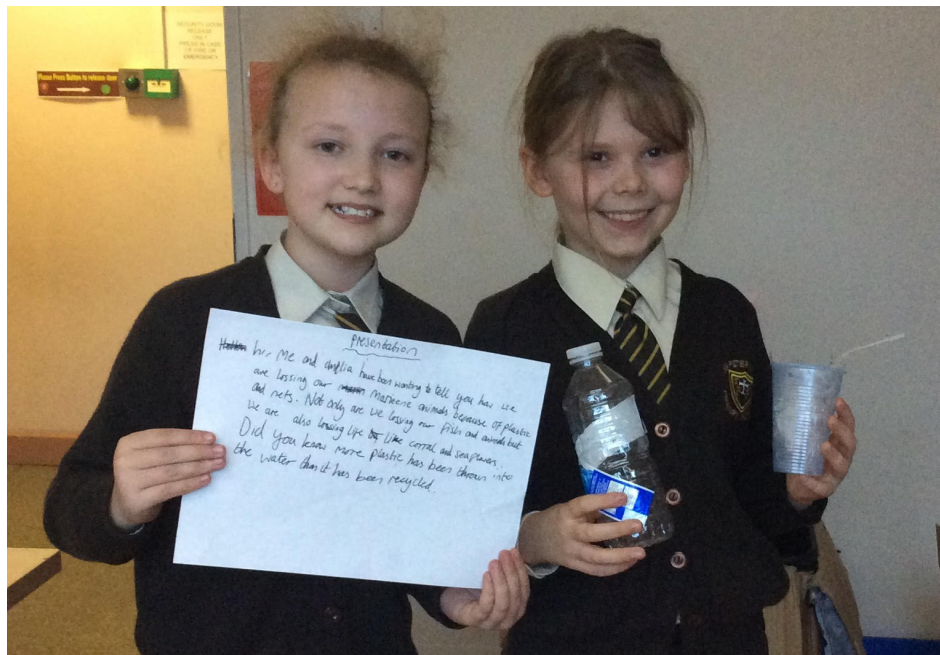 SECURITY DOOR
RELEASE
ONLY
PRESS IN CASE
OF FIRE OR
EMERGENCY
Please Press Button to release door
presentation
hir Me and amplia have been wanting to tell you how we
are lossing our Marinene animals because of plastic
and nets. Not only are we lossing our fish and animals but
we are also lossing life like corral and seapowers.
Did you know more plastic has been thrown into
the water than it has been recycled.